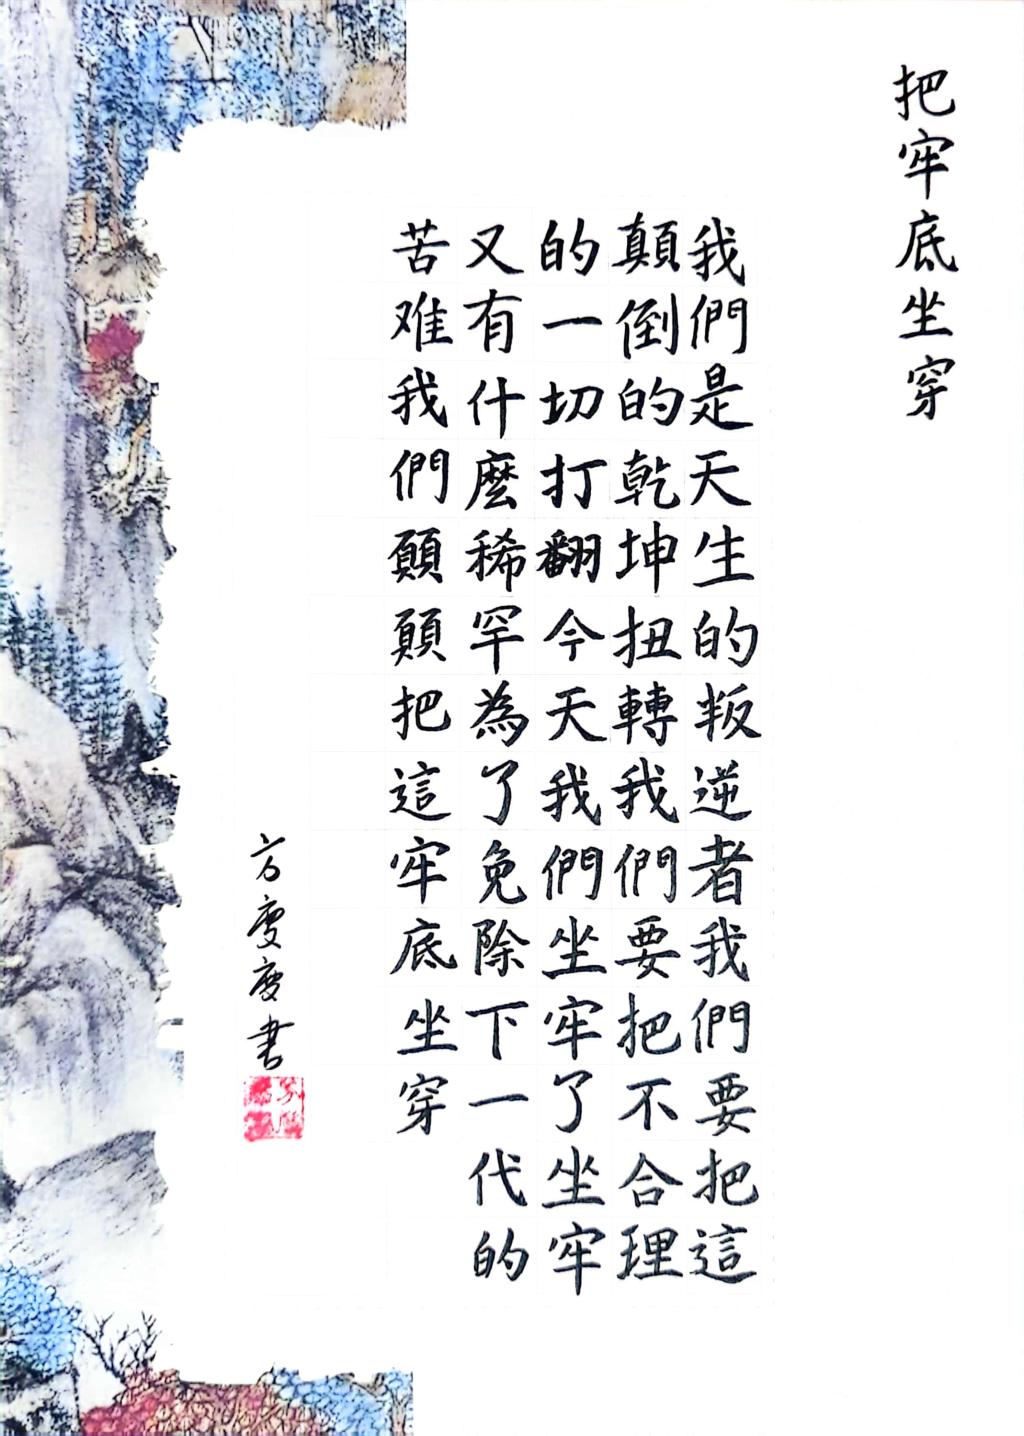 把牢底坐穿
我們是天生的叛逆者我們要把這
顛倒的乾坤扭轉我們要把不合理
的一切打翻今天我們坐牢了坐牢
又有什麼稀罕為了免除下一代的
苦难我們願願把這牢底坐穿
方慶慶書